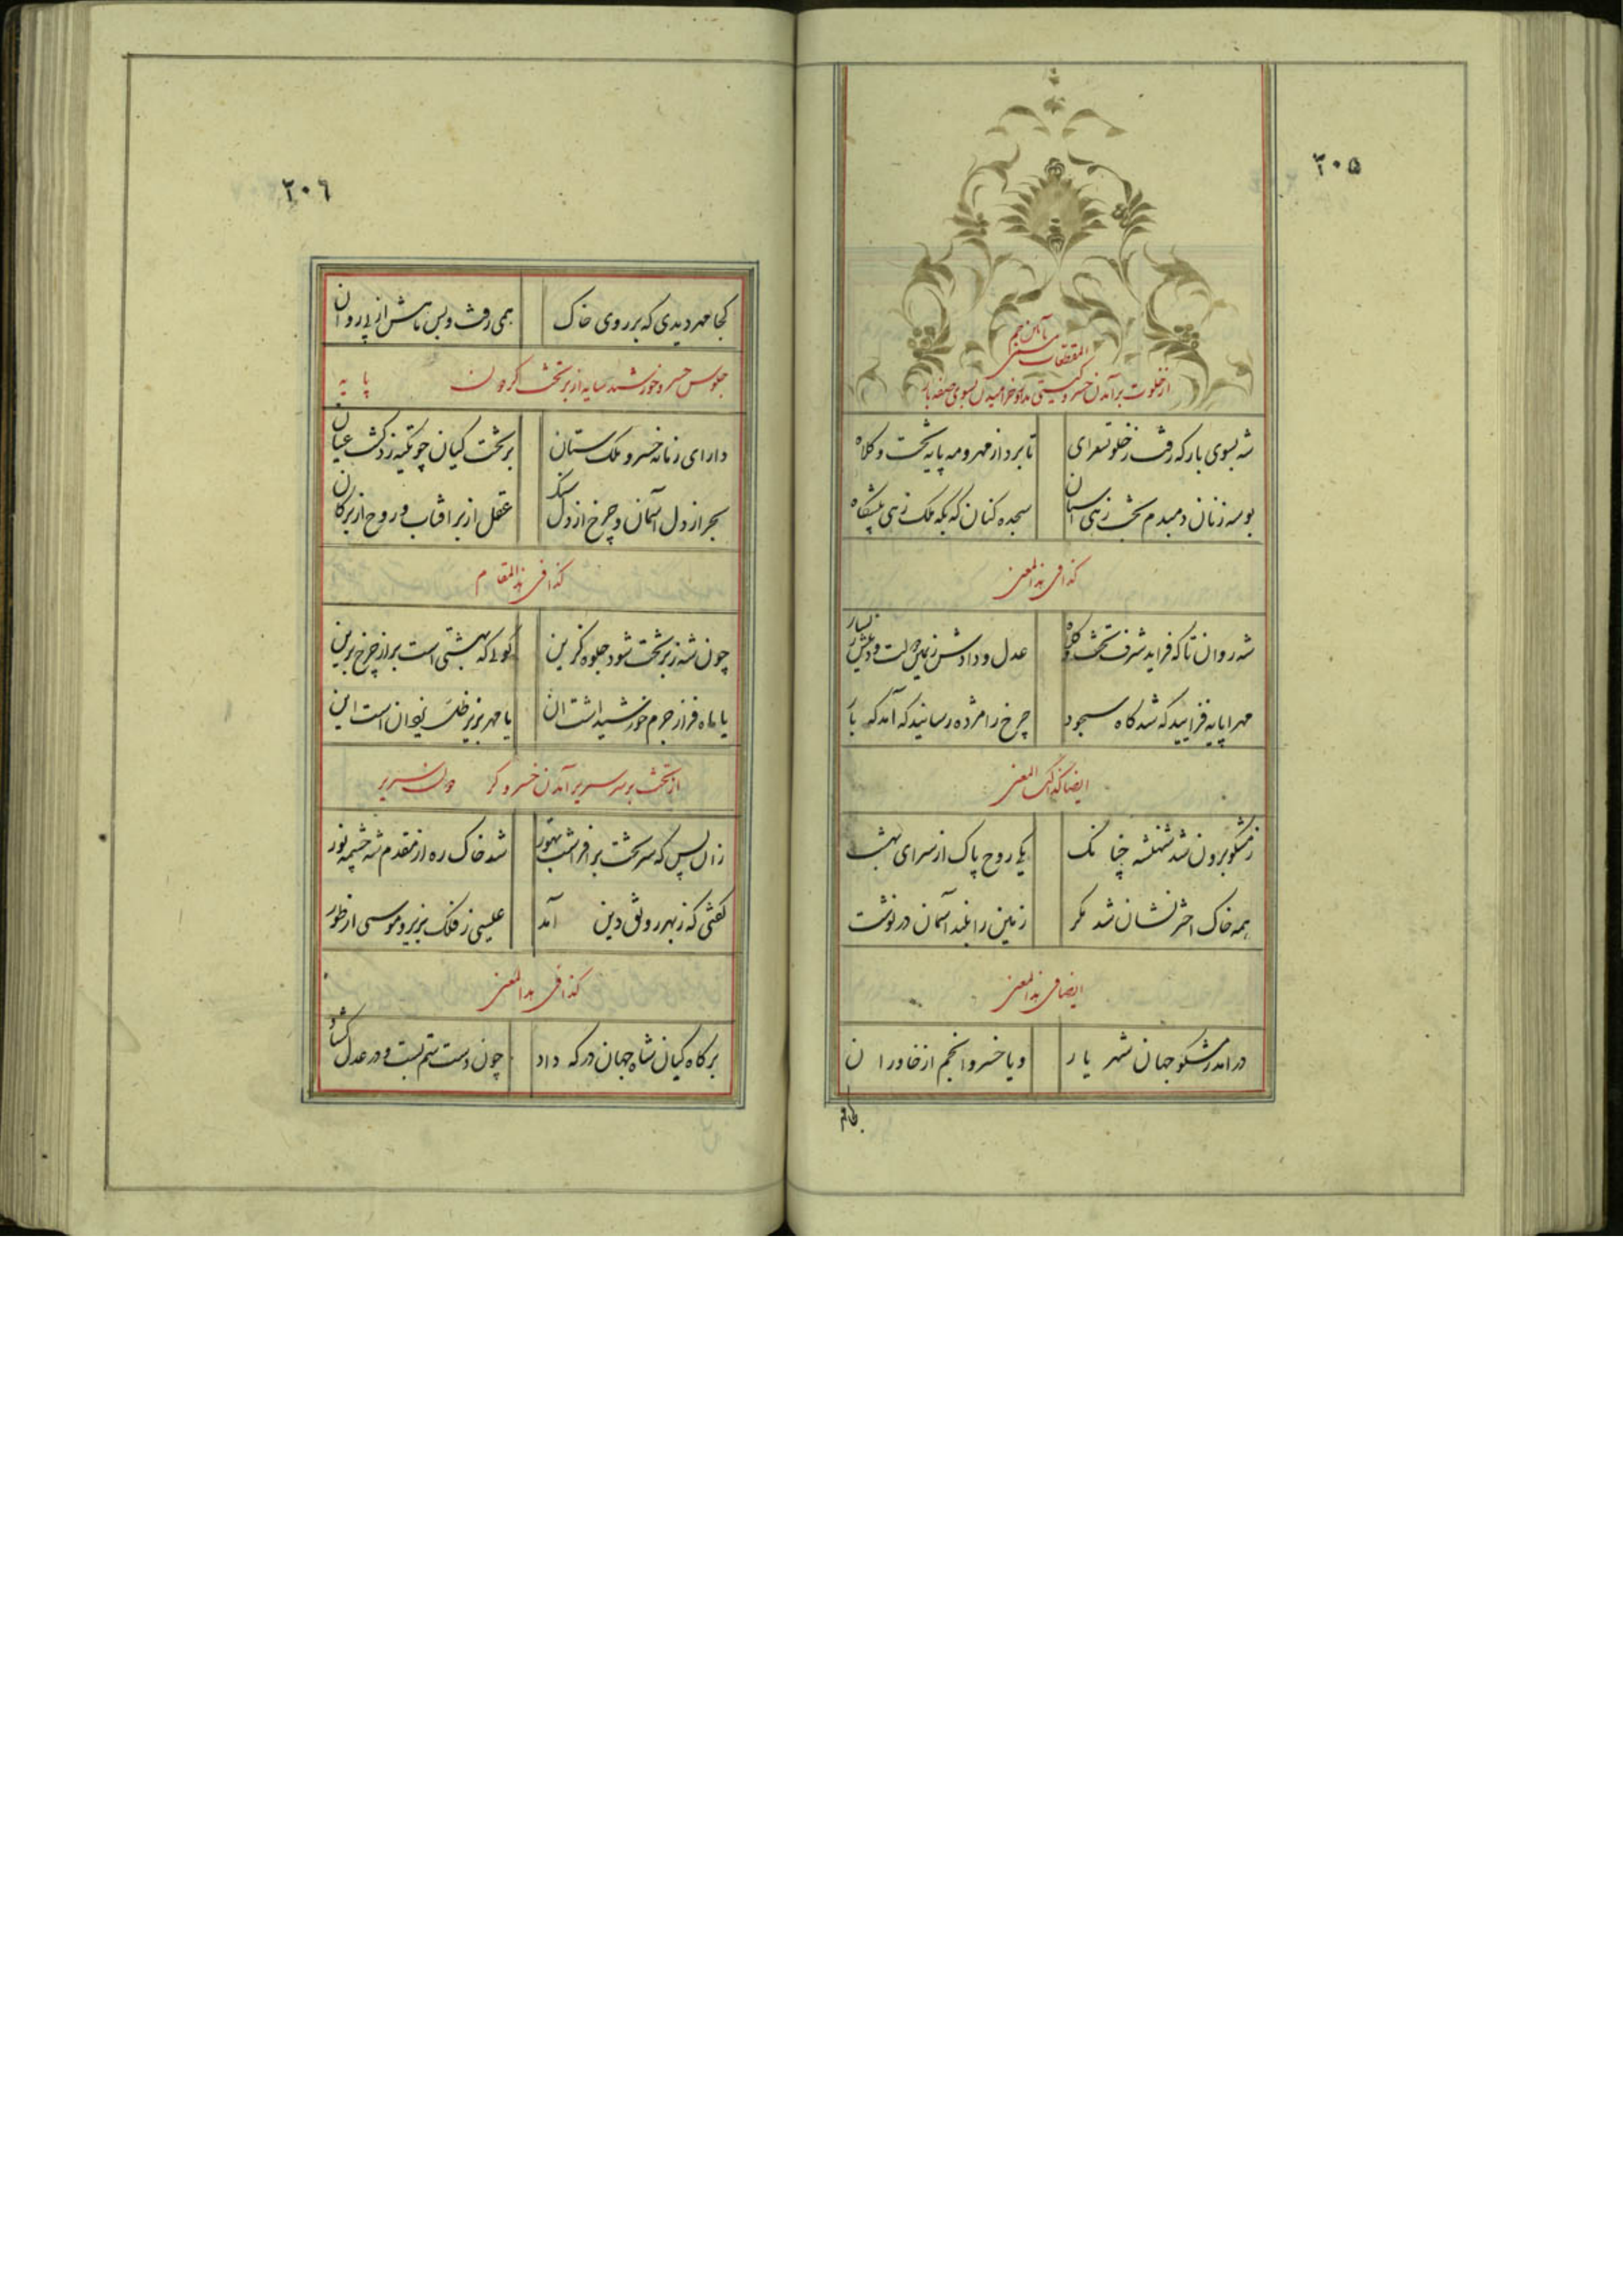 ۲۰۵
المقطعات
از خلوت برآمدن خسرو گیتی مدار و خرامیدن بسوی صفه بار
شه بسوی بارکه رفت ز خلوتسرای تا برد از مهر و مه پایه تخت و کلاه
بوسه زنان دمبدم تخت زهی آستان سجده کنان که بکه ملک زهی پیشگاه
کذا فی هذالمعنی
شه روان تا که فزاید شرف تخت و کلاه عدل و دادش ز یمین دولت و دینش ز یسار
مهر اپایه فزایید که شد کاه سجود چرخ را مژده رسانید که آمد که بار
ایضا کذلک المعنی
ز مشکو برون شد شهنشه چنانک یکی روح پاک از سرای بهشت
همه خاک اختر نشان شد مکر زمین را بلند آسمان در نوشت
ایضا فی هذالمعنی
درامد ز مشکو جهان شهریار و یا خسرو انجم از خاوران
کجا مهر
۲۰۶
کجا مهر دیدی که بر روی خاک همی رفت و بس تابش از پی روان
جلوس خسرو خورشید سایه از بر تخت کردون پایه
دارای زمانه خسرو ملک ستان بر تخت کیان چو تکیه زد کشت عیان
بحر از دل آسمان و چرخ از دل سنک عقل از بر افتاب و روح از بر کان
کذا فی هذالمقام
چون شه ز بر تخت شود جلوه کزین کوئی که بهشتی است بر از چرخ برین
یا ماه فراز جرم خورشید است ان یا مهر بزیر ظل یزدان است این
از تخت بر سریر آمدن خسرو کردون سریر
زان پس که سر تخت بر افراشت بهور شد خاک ره از مقدم شه چشمه نور
کفتی که ز بهر رونق دین آمد عیسی ز فلک بزیر و موسی از طور
کذا فی هذالمعنی
بر کاه کیان شاه جهان در که داد چون دست ستم بست و در عدل کشاد